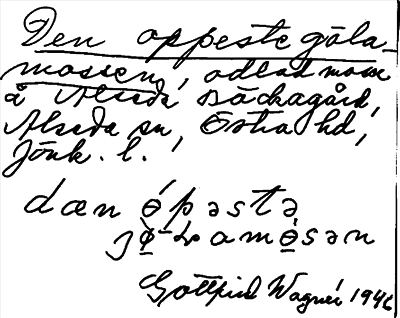 Den öppeste göla-
mossen, odlad mosse
å Alseda Bäckagård,
Alseda sn, Östra hd,
Jönk. l.
dæn ǿpəstə
Gottfrid Wagnér 1946